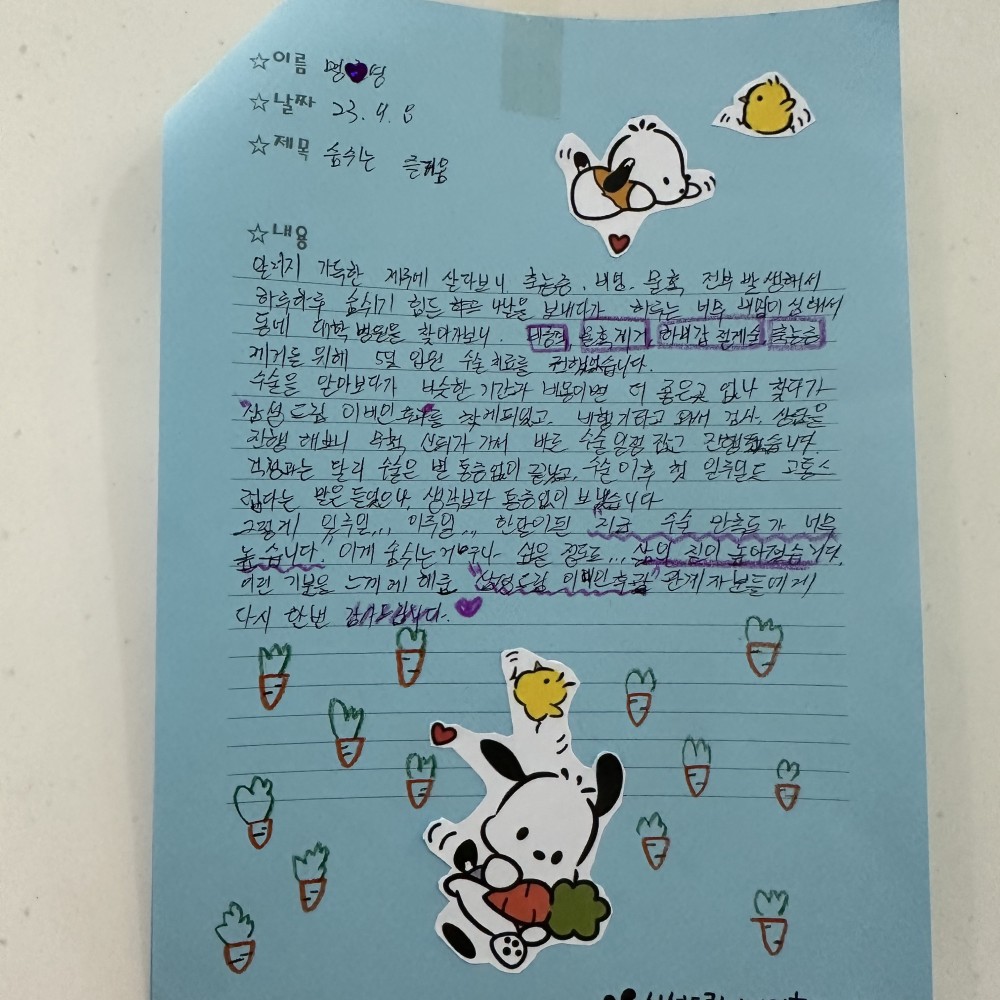 ☆이름 명♥영
☆날짜 23. 9. 8
☆제목 숨쉬는 즐거움
☆내용
알러지 가득한 제주에 살다보니 축농증, 비염, 물혹 전부 발생해서
하루하루 숨쉬기 힘든 하루 나날을 보내다가 하루는 너무 해서
동네 대학병원을 찾아가보니. 비중격, 물혹제거, 하비갑 절제술, 축농증
제거를 위해 5일 입원 수술치료를 권했었습니다.
수술을 알아보다가 비슷한 기간과 비용이면 더 좋은곳 있나 찾다가
"삼성드림 이비인후과"를 찾게되었고, 비행기타고 와서 검사, 상담을
진행 해보니 무척 신뢰가 가서 바로 수술일정 잡고 진행했습니다.
걱정과는 달리 수술은 별 통증없이 끝났고, 수술 이후 첫 일주일도 고통스
럽다는 말은 들었으나, 생각보다 통증없이 보냈습니다
그렇게 일주일,,, 이주일,,, 한달이된 지금 수술 만족도가 너무
높습니다. 이게 숨쉬는거구나 싶은 정도로... 삶의 질이 높아졌습니다.
이런 기분을 느끼게 해준 "삼성드림 이비인후과" 관계자분들에게
다시 한번 감사드립니다. ♥